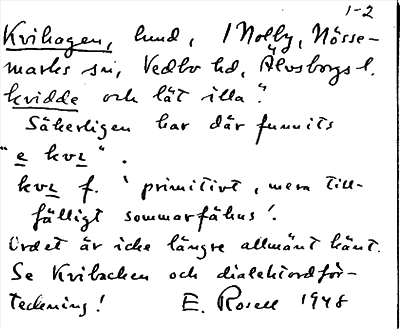 1-2
Kvihagen, lund, i Nolby, Nösse-
marks sn, Vedbo hd, Älvsborgs l.
kvidde och lät illa".
Säkerligen har där funnits
"e kvi".
kvi f. 'primitivt, mera till-
fälligt sommarfähus'.
Ordet är icke längre allmänt känt.
Se Kvibacken och dialektordför-
teckning! E. Rosell 1948